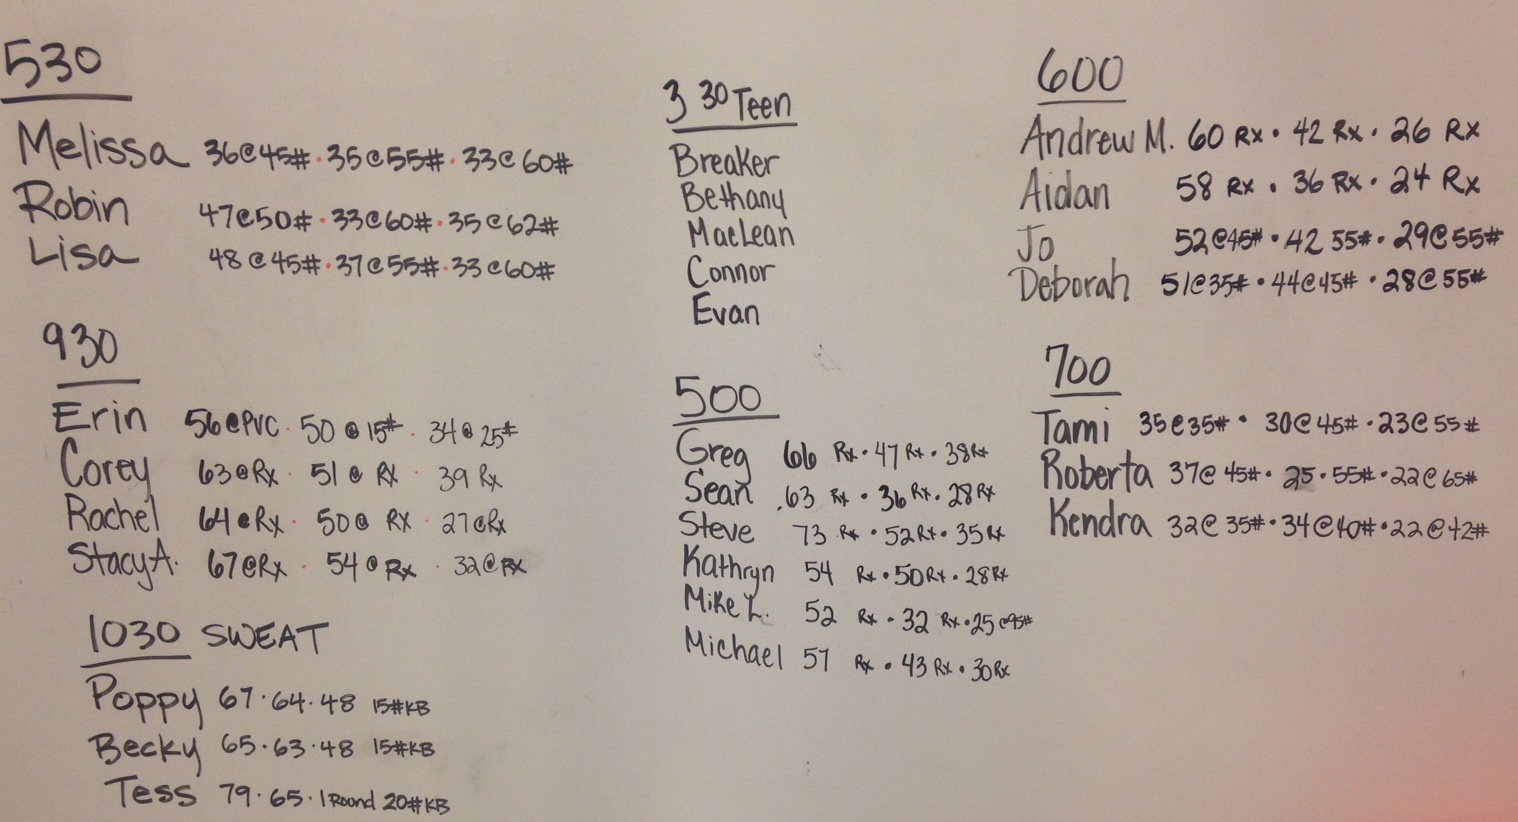 530
Melissa 36@45# · 35@55# · 33@60#
Robin 47@50# · 33@60# · 35@62#
Lisa 48@45# · 37@55# · 33@60#
930
Erin 56@PVC · 50@15# · 34@25#
Corey 63@Rx · 51@RX · 39 Rx
Rachel 64@Rx · 50@RX · 27@Rx
Stacy A. 67@Rx · 54@Rx · 32@RX
1030 SWEAT
Poppy 67·64·48 15#KB
Becky 65·63·48 15#KB
Tess 79·65·1 Round 20#KB
3 30 Teen
Breaker
Bethany
MacLean
Connor
Evan
500
Greg 66 Rx · 47 Rx · 38 Rx
Sean 63 Rx · 36 Rx · 28 Rx
Steve 73 Rx · 52 Rx · 35 Rx
Kathryn 54 Rx · 50 Rx · 28 Rx
Mike L. 52 Rx · 32 Rx · 25@95#
Michael 57 Rx · 43 Rx · 30 Rx
600
Andrew M. 60 Rx · 42 Rx · 26 Rx
Aidan 58 Rx · 36 Rx · 24 Rx
Jo 52@45# · 42 55# · 29@55#
Deborah 51@35# · 44@45# · 28@55#
700
Tami 35@35# · 30@45# · 23@55#
Roberta 37@45# · 25·55# · 22@65#
Kendra 32@35# · 34@40# · 22@42#